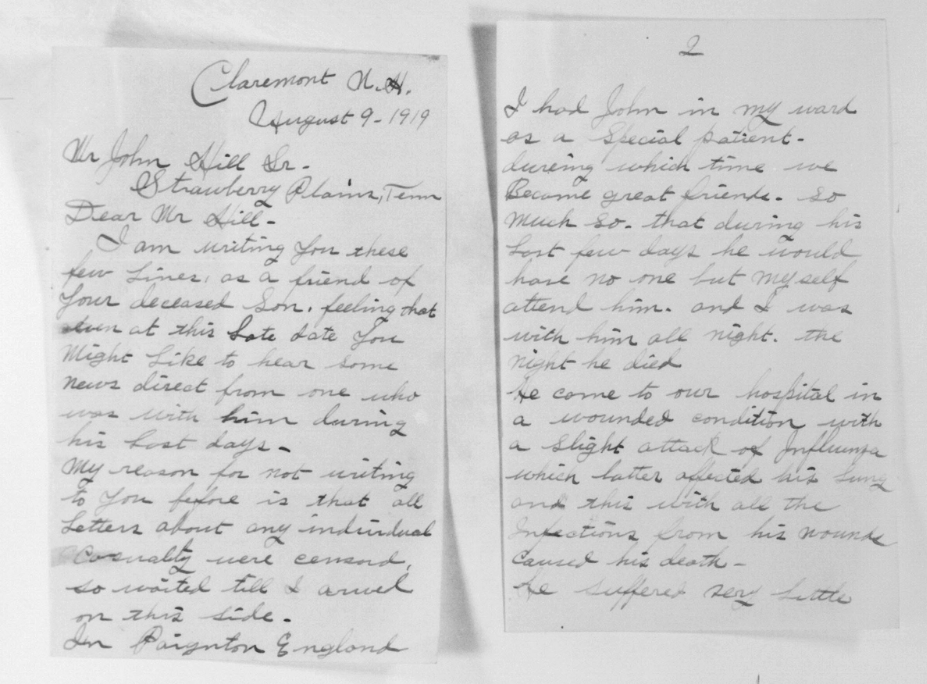 Claremont N.H.
August 9-1919
Mr John Hill Sr.-
Strawberry Plains, Tenn
Dear Mr Hill-
I am writing you these
few Lines, as a friend of
Your deceased Son. feeling that
even at this Late date You
Might Like to hear some
news direct from one who
was with him during
his Last days-
My reason for not writing
to You before is that all
Letters about any individual
Casualty were censord,
so waited till I arived
on this side.-
In Paignton England
2
I had John in my ward
as a Special patient-
dureing which time we
Became great friends- So
Much so- that during his
Last few days he would
have no one but Myself
attend him- and I was
with him all night. the
night he died
He came to our hospital in
a wounded condition with
a Slight attack of Influenza
which latter affected his Lung
and this with all the
Infections from his wounds
Caused his death-
He suffered very Little